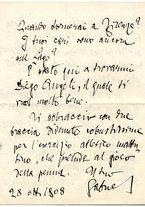 Quando tornerai a Firenze?
I tuoi cari sono ancora
sul Lago?
È stato qui a trovarmi
Diego Angeli, il quale ti
vuol molto bene.
Ti abbraccio con due
braccia divenute robustissime
per l'esercizio atletico mattu-
tino, che prelude al gioco
della penna.
Il tuo
28 ott. 1908
Gabriel